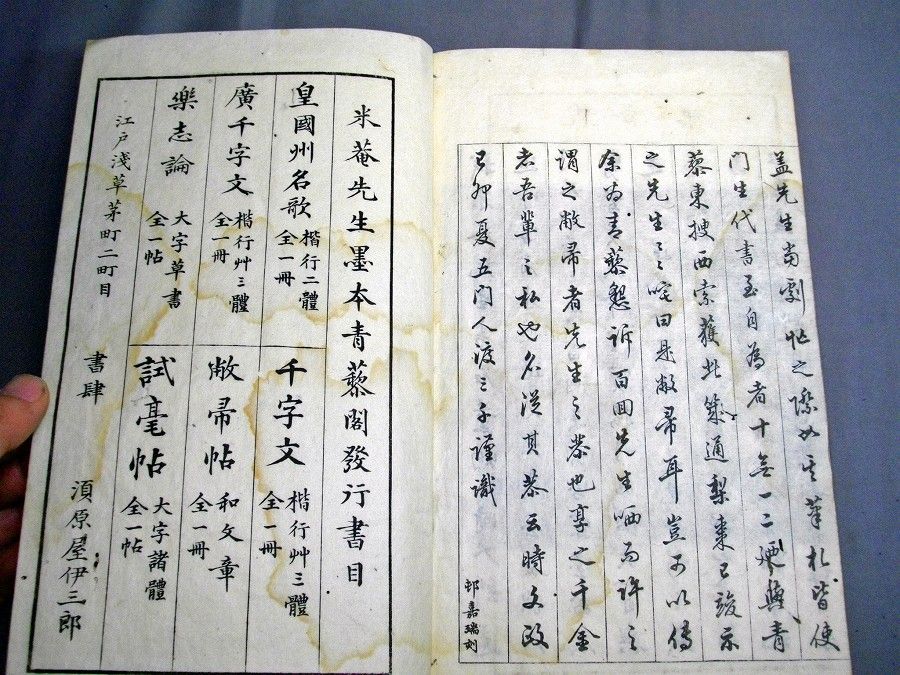 蓋先生當劇忙之際如其筆札皆使
門生代書至自為者十無一二焉與青
藜東搜西索獲此築通梨棗已竣示
之先生之咤曰是敝帚耳豈可以傳
余為青藜懇訴百回先生哂而許之
謂之敝帚者先生之恭也享之千金
者吾輩之私也名從其恭云時文政
己卯夏五門人渡三千謹識
邨嘉瑞刻
米菴先生墨本青藜閣發行書目
皇國州名歌 楷行二體 全一冊
千字文 楷行艸三體 全一冊
廣千字文 楷行艸三體 全一冊
敝帚帖 和文章 全一冊
樂志論 大字草書 全一帖
試毫帖 大字諸體 全一帖
江戸淺草茅町二町目
書肆 須原屋伊三郎